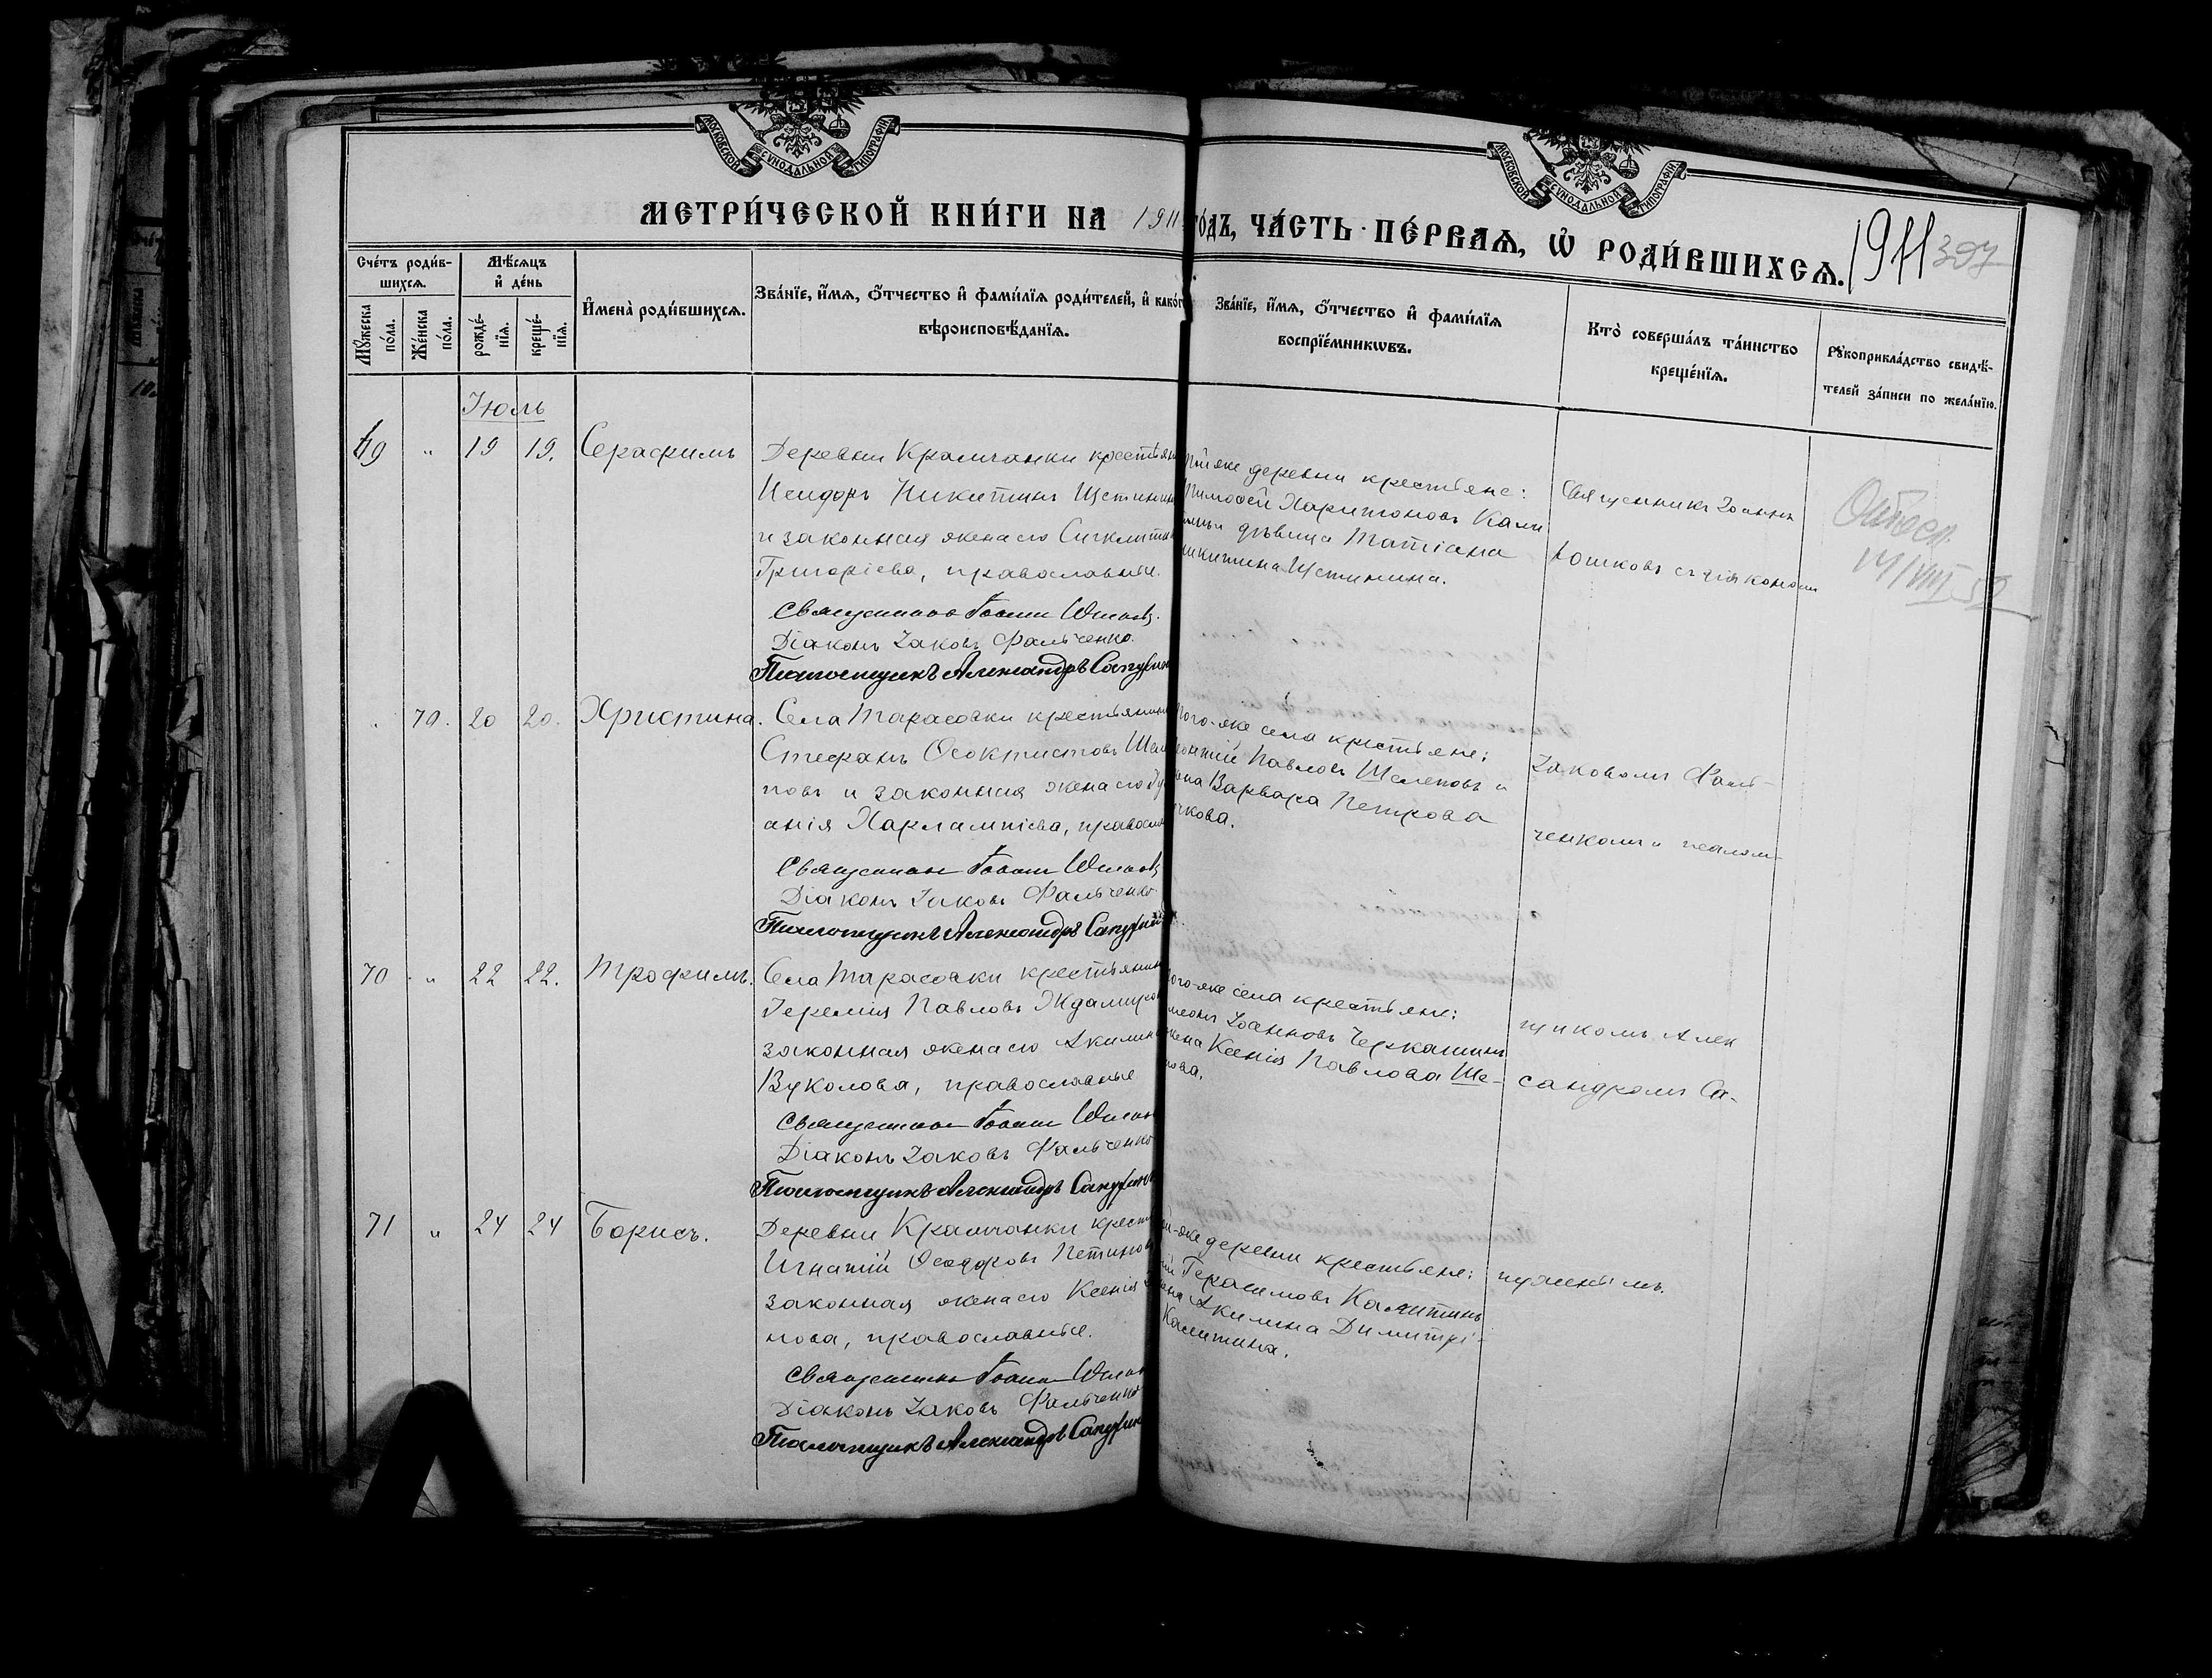 МОСКОВСКОЙ СѴНОДАЛЬНОЙ ТИПОГРАФІИ
МОСКОВСКОЙ СѴНОДАЛЬНОЙ ТИПОГРАФІИ
МЕТРИ́ЧЕСКОЙ КНИ́ГИ НА 1911
ГО́ДЪ, ЧА́СТЬ ПЕ́РВАѦ, Ѡ҆ РОДИ́ВШИХСѦ.
1911 397
Сче́тъ роди́в-
шихсѧ.
Мꙋ́жеска по́ла.
Же́нска по́ла.
Мѣ́сѧцъ
и҆ де́нь
рожде́-
нїѧ.
креще́-
нїѧ.
И҆мена̀ роди́вшихсѧ.
Зва́нїе, и҆́мѧ, ѻ҆́тчество и҆ фами́лїѧ роди́телей, и҆ како́г
вѣроисповѣ́данїѧ.
Зва́нїе, и҆́мѧ, ѻ҆́тчество и҆ фами́лїѧ
воспрїе́мникѡвъ.
Кто̀ соверша́лъ та́инство
креще́нїѧ.
Рꙋкоприкла́дство свидѣ́-
телей за́писи по жела́нїю.
Іюль
69 " 19 19. Серафимъ
Деревни Крамчанки крестьян
Исидоръ Никитинъ Щетинин
и законная жена его Сигклити
Григоріева, православные.
Священникъ Іоаннъ
Діаконъ Іаковъ Фальченко.
Псаломщикъ Александръ
той же деревни крестьяне:
Тимофей Харитоновъ
дѣвица Татіана
Никитина Щетинина.
Священникъ Іоаннъ
съ діакономъ
" 70. 20 20. Христина.
Села Тарасовки крестьянин
Стефанъ Ѳеоктистовъ Шел
повъ и законная жена его
анія Харлампіева, правосла
Священникъ Іоаннъ
Діаконъ Іаковъ Фальченко
Псаломщикъ Александръ
того-же села крестьяне:
Павловъ Шелеповъ и
Варвара Петрова
Іаковомъ Фаль-
ченкомъ и псалом-
70 " 22 22. Трофимъ.
Села Тарасовки крестьянин
Іеремія Павловъ
законная жена его Акилин
Вуколова, православные
Священникъ Іоаннъ
Діаконъ Іаковъ Фальченко
Псаломщикъ Александръ
того-же села крестьяне:
Іоанновъ Черкашинъ
жена Ксенія Павлова Ше-
щикомъ Алек
сандромъ Са-
71 " 24 24 Борисъ.
Деревни Крамчанки крест
Игнатій Ѳеодоровъ
законная жена его Ксенія
нова, православные.
Священникъ Іоаннъ
Діаконъ Іаковъ Фальченко
Псаломщикъ Александръ
же деревни крестьяне:
Герасимовъ
Акилина Димитрі-